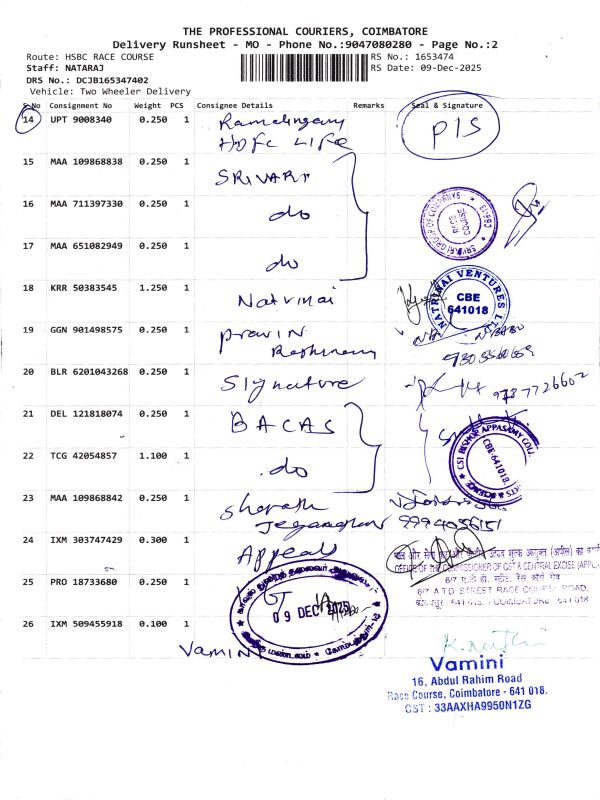 THE PROFESSIONAL COURIERS, COIMBATORE
Delivery Runsheet - MO - Phone No.:9047080280 - Page No.:2
Route: HSBC RACE COURSE RS No.: 1653474
Staff: NATARAJ RS Date: 09-Dec-2025
DRS No.: DCJB165347402
Vehicle: Two Wheeler Delivery
S.No Consignment No Weight PCS Consignee Details Remarks Seal & Signature
14 UPT 9008340 0.250 1 Ramalingam P1S
HDFC LIFE
15 MAA 109868838 0.250 1 SRIVARI
16 MAA 711397330 0.250 1 do
SRIVARI GROUP OF COMPANIES
RACE COURSE
CBE-18
17 MAA 651082949 0.250 1 do
18 KRR 50383545 1.250 1 Natrinai
NATRINAI VENTURES
CBE
641018
19 GGN 901498575 0.250 1 pravin
9305560659
20 BLR 6201043268 0.250 1 Signature 9787726602
21 DEL 121818074 0.250 1 BACAS
22 TCG 42054857 1.100 1 do
CSI BISHOP APPASAMY
ARTS & SCIENCE
CBE-641018
23 MAA 109868842 0.250 1 Sharath
24 IXM 303747429 0.300 1 Appeals
OFFICE OF THE COMMISSIONER OF GST & CENTRAL EXCISE
6/7 A.T.D. STREET RACE COURSE ROAD,
25 PRO 18733680 0.250 1 GT
09 DEC 2025
26 IXM 509455918 0.100 1 Vamini
Vamini
16, Abdul Rahim Road
Race Course, Coimbatore - 641 018.
GST : 33AAXHA9950N1ZG